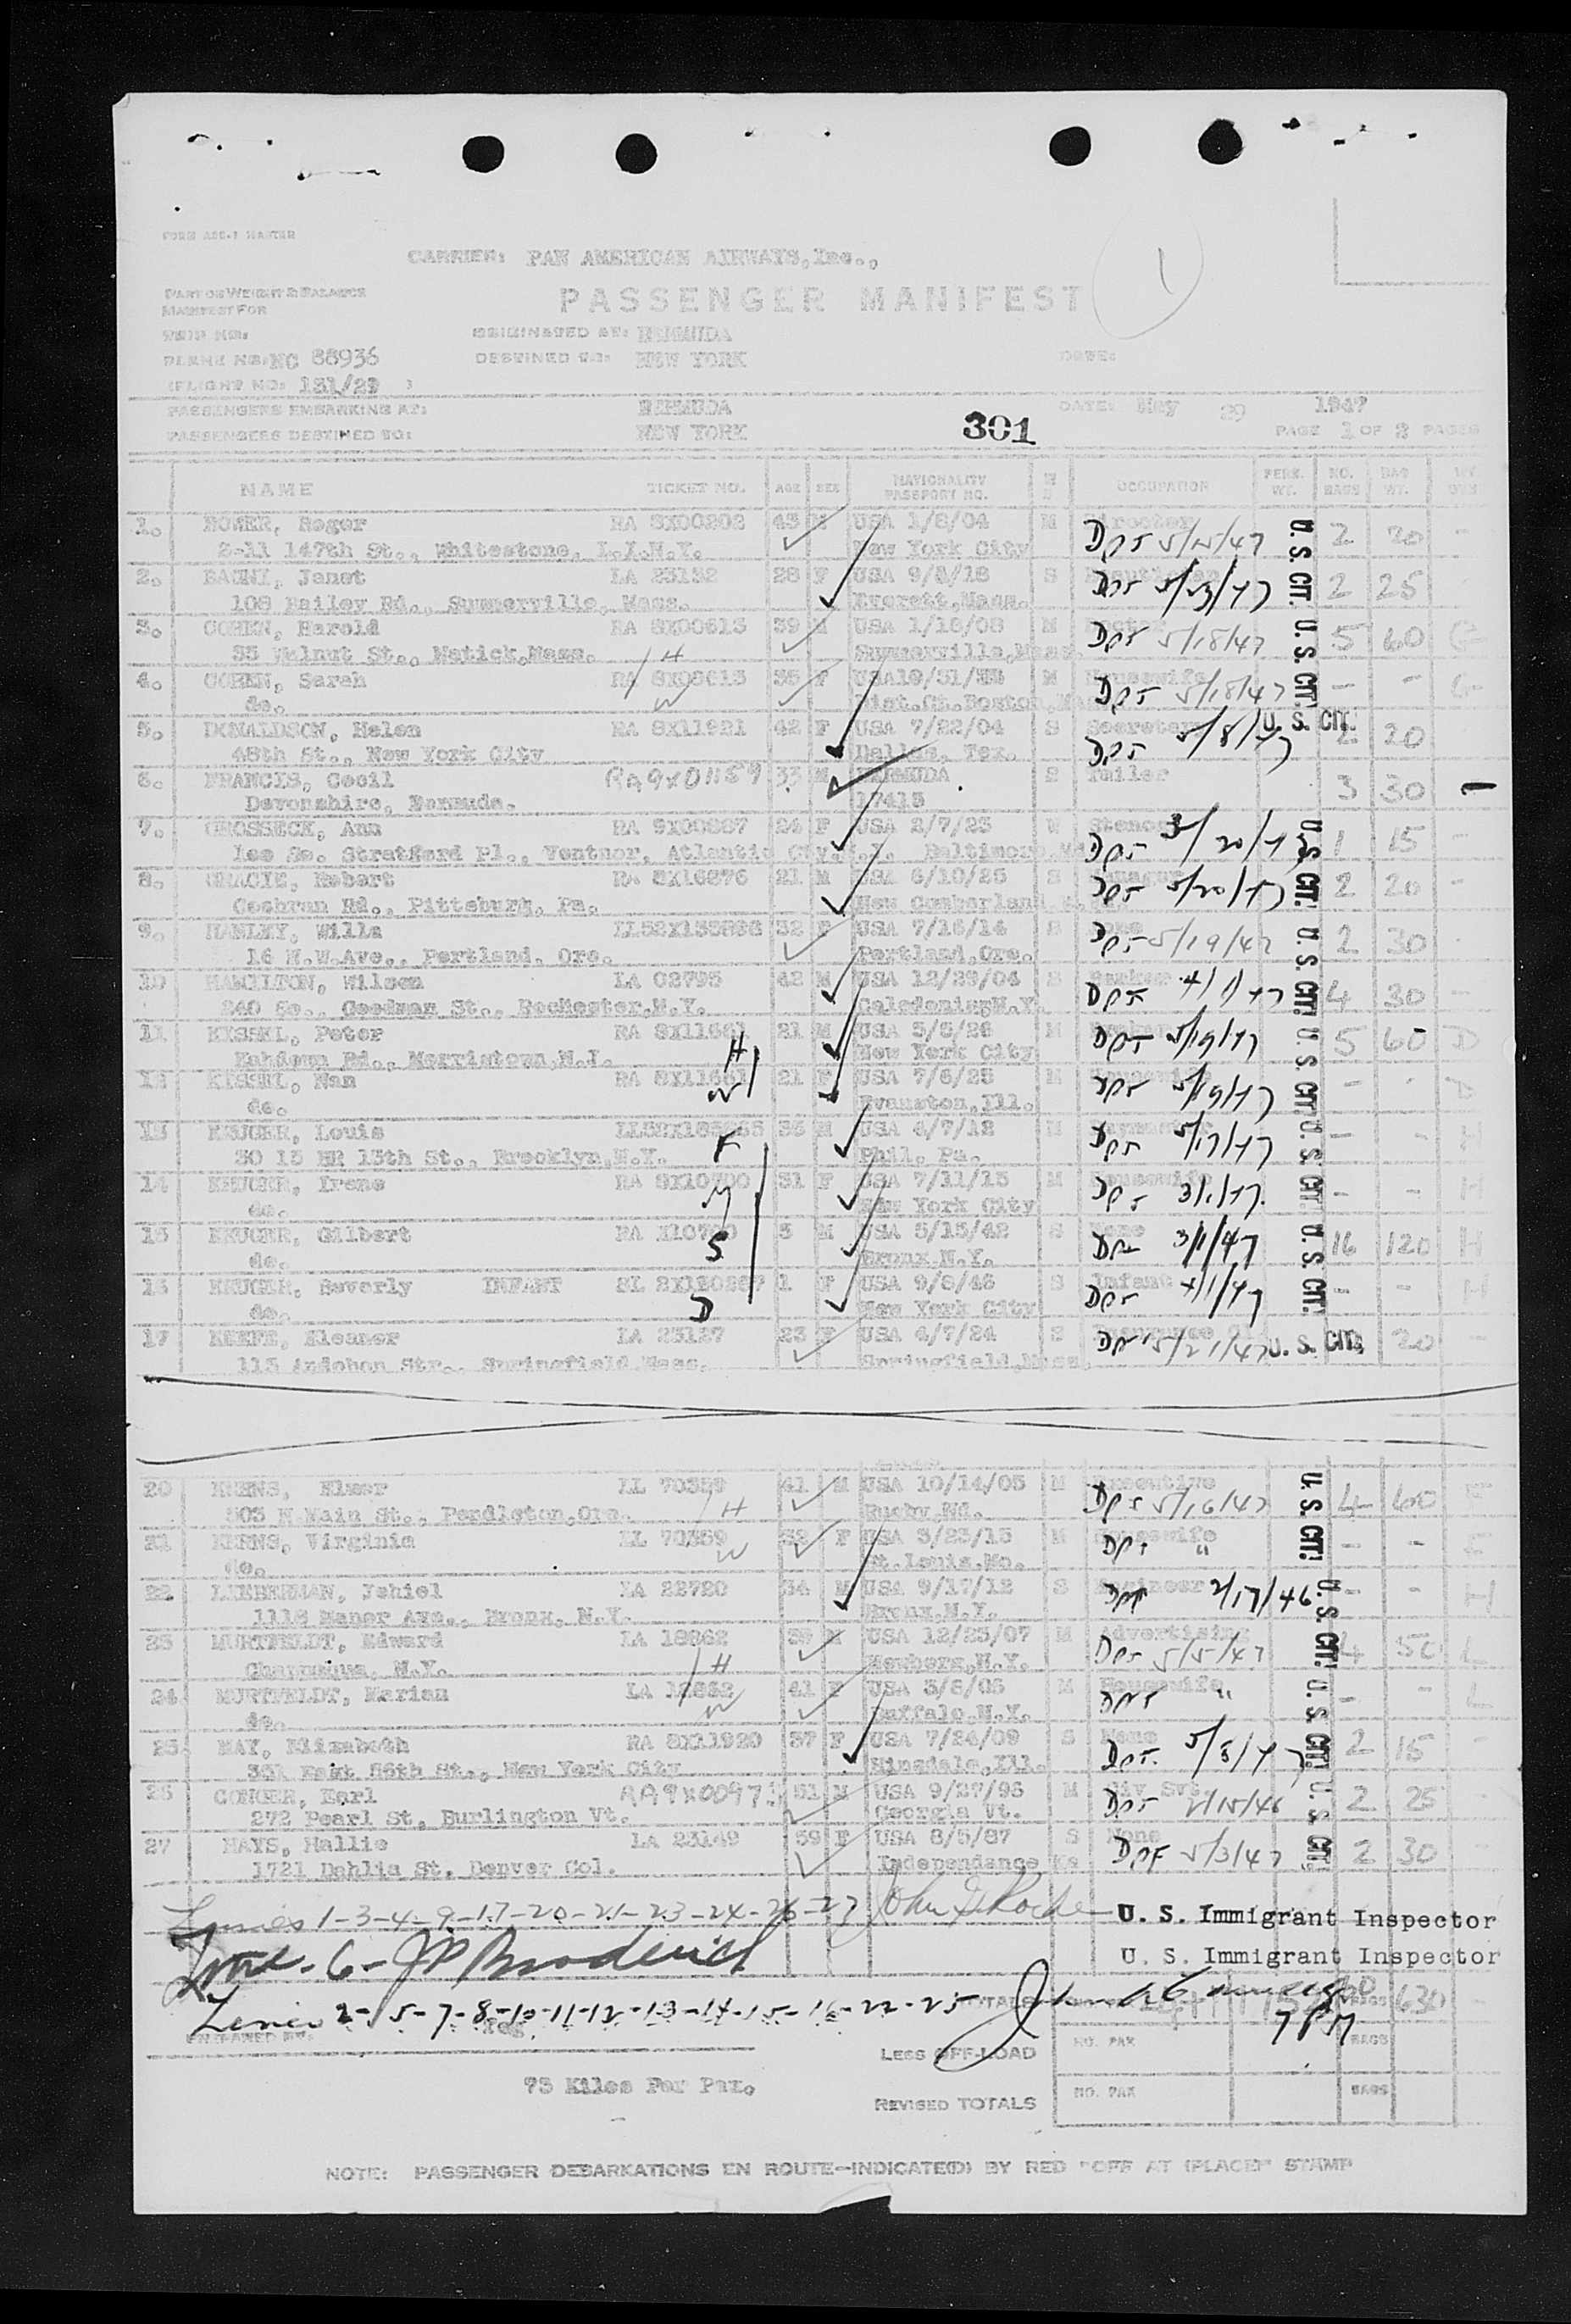 FORM ADC-1 MASTER
CARRIER: PAN AMERICAN AIRWAYS, Inc.,
1
PART OF WEIGHT & BALANCE
MANIFEST FOR
PASSENGER MANIFEST
TRIP NO:
ORIGINATED AT: BERMUDA
PLANE NO: NC 88936
DESTINED TO: NEW YORK
DATE:
(FLIGHT NO: 131/29 )
PASSENGERS EMBARKING AT: BERMUDA
DATE: May 29 1947
PASSENGERS DESTINED TO: NEW YORK
301
PAGE 1 OF 2 PAGES
NAME TICKET NO. AGE SEX NATIONALITY PASSPORT NO. OCCUPATION PERS. WT. NO. BAGS BAG WT.
1. Roger RA 8X00202 43 M USA 1/8/04 M Director U. S. CIT. 2 20 -
2-11 147th St., Whitestone, L.I.N.Y. New York City
2. Janet LA 23132 28 F USA 9/5/18 S 5/23/47 U. S. CIT. 2 25
108 Bailey Rd., Summerville, Mass. Everett, Mass.
3. COHEN, Harold RA 8X00613 39 M USA 1/18/08 M Doctor 5/18/47 U. S. CIT. 5 60 G
35 Walnut St., Natick, Mass. H Summerville, Mass.
4. COHEN, Sarah RA 8X00613 35 F M Housewife 5/18/47 - - G
do. W Dist. Ct. Boston, Mass
5. DONALDSON, Helen RA 8X11921 42 F USA 7/22/04 S Secretary 5/8/47 U. S. CIT. 2 20
48th St., New York City Dallas, Tex.
6. FRANCIS, Cecil RA 9X01159 33 M BERMUDA S Tailor 3 30
Devonshire, Bermuda. 17415
7. GROSSECK, Ann RA 9X00887 24 F USA 2/7/23 Steno 5/20/47 U. S. CIT. 1 15 -
Lee So. Stratford Pl., Ventnor, Atlantic Cty. N.J. Baltimore, Md.
8. GRACIE, Robert RA 8X16876 21 M USA 6/10/25 S Manager 5/20/47 U. S. CIT. 2 20 -
Cochran Rd., Pittsburg, Pa. New Cumberland,
9. HANLEY, Willa 32 F USA 7/16/14 None 5/19/47 U. S. CIT. 2 30
16 N.W.Ave., Portland, Ore. Portland, Ore.
10 HAMILTON, Wilson LA 02795 42 M USA 12/29/04 S Banker U. S. CIT. 4 30 -
240 So., Goodman St., Rochester, N.Y. Caledonia, N.Y.
11 KISSEL, Peter RA 8X11661 21 M USA 5/5/26 M 5/19/47 U. S. CIT. 5 60 D
Rd., Morristown, N.J. H New York City
12 KISSEL, Nan RA 8X11661 21 F USA 7/6/25 M Housewife 5/19/47 U. S. CIT. - - D
do. W Evanston, Ill.
13 KRUGER, Louis 35 M USA 4/7/12 M 5/17/47 U. S. CIT. - - H
30 15 BR 13th St., Brooklyn, N.Y. F Phil, Pa.
14 KRUGER, Irene RA 8X10700 31 F USA 7/11/15 M Housewife 3/1/47 - - H
do. M New York City
15 KRUGER, Gilbert 5 M USA 5/15/42 S None 3/1/47 U. S. CIT. 16 120 H
do. S Bronx, N.Y.
16 KRUGER, Beverly INFANT 1 F USA 9/8/46 S Infant - - H
do. D New York City
17 KEEFE, Eleanor LA 23127 23 F USA 4/7/24 S 5/21/47 U. S. CIT. 20 -
115 Audobon Str., Springfield, Mass. Springfield, Mass.
20 KERNS, Elmer LL 70359 41 M USA 10/14/05 M Executive 5/16/47 U. S. CIT. 4 60
503 N Main St., Pendleton, Ore. H
21 KERNS, Virginia LL 70359 32 F USA 3/23/15 M Housewife " - -
do. W St. Louis, Mo.
22 LIEBERMAN, Jehiel LA 22720 34 M USA 9/17/12 S Engineer 2/17/46 U. S. CIT. - - H
1118 Manor Ave., Bronx, N.Y. Bronx, N.Y.
23 MURTFELDT, Edward LA 18862 39 M USA 12/25/07 M Advertising 5/5/47 U. S. CIT. 4 50 L
Chappaqua, N.Y. H Newberg, N.Y.
24 MURTFELDT, Marian LA 18862 41 F USA 3/8/06 M Housewife " - - L
do. W Buffalo, N.Y.
25 MAY, Elizabeth RA 8X11920 37 F USA 7/24/09 S None 5/8/47 U. S. CIT. 2 15 -
351 East 56th St., New York City Hinsdale, Ill.
26 CONGER, Earl 51 M USA 9/27/95 M Civ Svt. U. S. CIT. 2 25
272 Pearl St, Burlington Vt. Georgia Vt.
27 MAYS, Hallie LA 23149 59 F USA 8/5/87 S None 5/3/47 2 30
1721 Dahlia St, Denver Col. Independance Ks
Lines 1-3-4-9-17-20-21-23-24-26-27 John J. Roche U. S. Immigrant Inspector
Line - 6 - JP Broderick U. S. Immigrant Inspector
Lines 2-5-7-8-10-11-12-13-14-15-16-22-25 TOTALS BAGS 630
7 PM
PREPARED BY:
LESS OFF-LOAD NO. PAX BAGS
73 Kilos Per Pax.
REVISED TOTALS NO. PAX BAGS
NOTE: PASSENGER DEBARKATIONS EN ROUTE—INDICATE(D) BY RED "OFF AT (PLACE)" STAMP